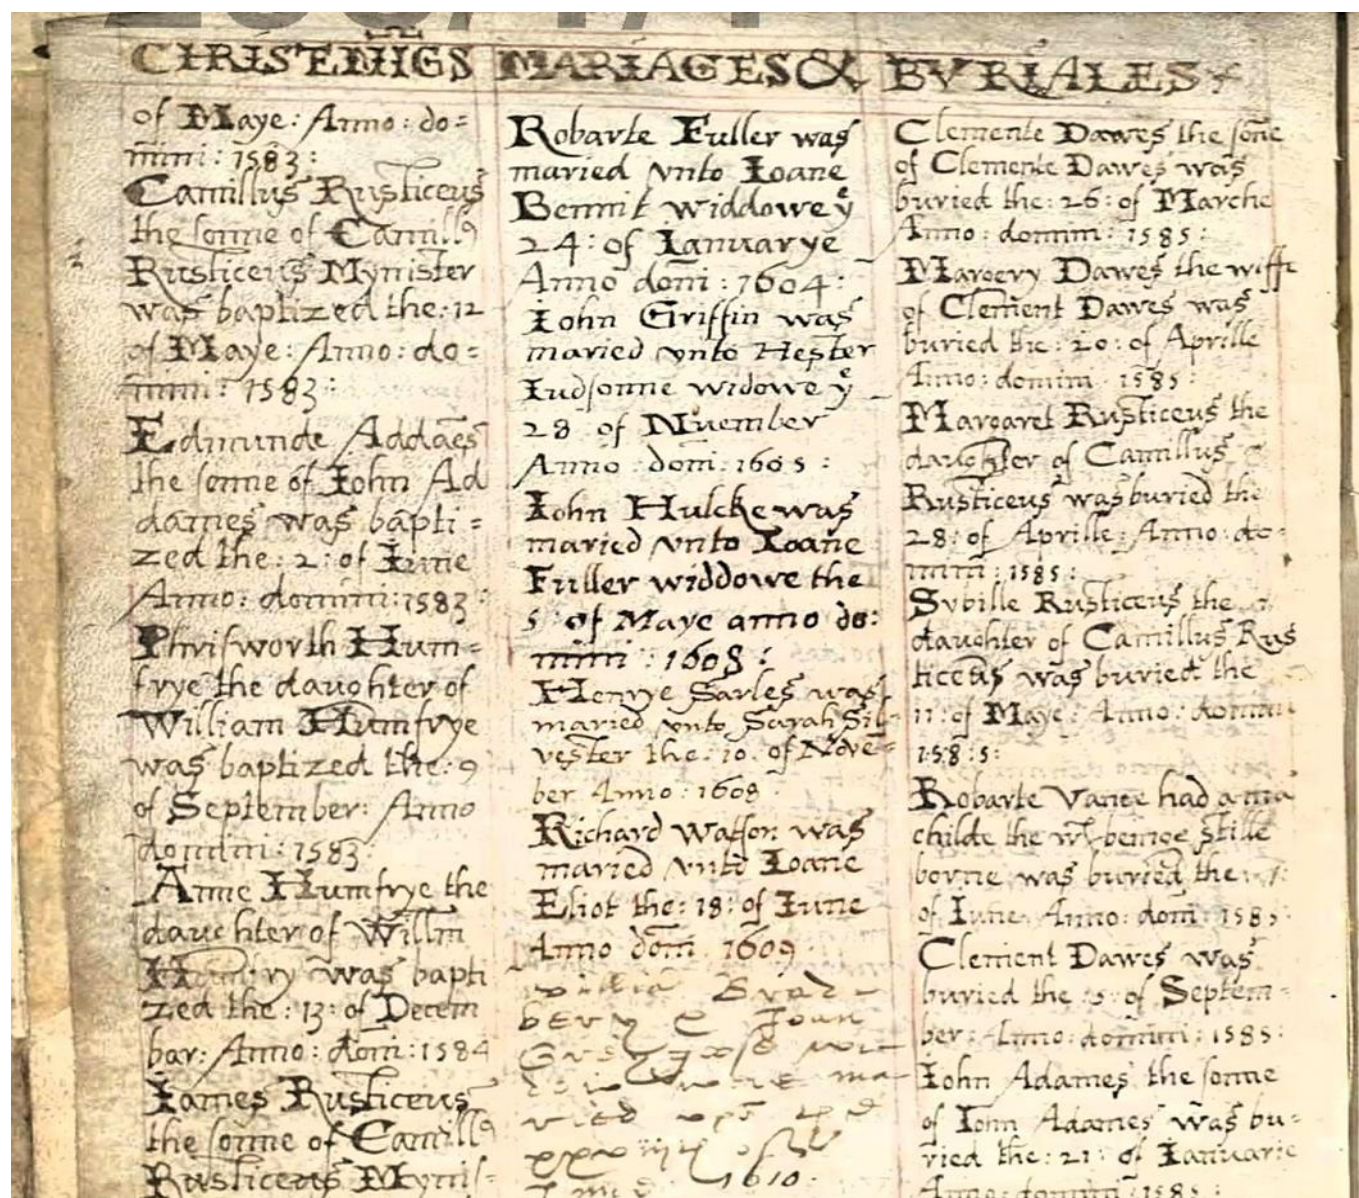 CHRISTENIGS MARIAGES & BVRIALES
of Maye: Anno: do=
mini: 1583:
Camillus Rusticeus
the sonne of Camill9
Rusticeus Mynister
was baptized the: 12
of Maye: Anno: do=
mini: 1583:
Edmunde Addaes
the sonne of Iohn Ad
dames was bapti=
zed the: 2: of Iune
Anno: domini: 1583:
Phrisworth Hum=
frye the daughter of
William Humfrye
was baptized the: 9
of September: Anno
domini: 1583:
Anne Humfrye the
daughter of Willm
was bapti
zed the: 13: of Decem
bar: Anno: dom: 1584
Iames Rusticeus
the sonne of Camill9
Rusticeus Mynis=
Robarte Fuller was
maried vnto Ioane
Bennit widdowe ye
24: of Ianuarye
Anno domi: 1604:
Iohn Griffin was
maried vnto Hester
Iudsonne widowe ye
28 of Nuember
Anno dom: 1605:
Iohn Hulcke was
maried vnto Ioane
Fuller widdowe the
5: of Maye anno do:
mini: 1608:
Henrye Sarles was
maried vnto Sarah Sil=
vester the: 10. of Nove=
ber Anno: 1608
Richard Watson was
maried vnto Ioane
Eliot the: 18: of Iune
Anno dom. 1609
Brad=
bery & Joan
ma
ried
1610.
Clemente Dawes the sone
of Clemente Dawes was
buried the: 26: of Marche
Anno: domini: 1585:
Margery Dawes the wiffe
of Clement Dawes was
buried the: 20: of Aprille
Anno: domini 1585:
Margaret Rusticeus the
daughter of Camillus
Rusticeus was buried the
28: of Aprille: Anno: do=
mini: 1585:
Sybille Rusticeus the
daughter of Camillus Rus
ticeus was buried the
11: of Maye: Anno: domini
158:5:
Robarte Vantte had a ma
childe the wch beinge stille
borne was buried the
of Iune. Anno: dom 1585:
Clement Dawes was
buried the of Septem=
ber: Anno: domini: 1585:
Iohn Adames the sonne
of Iohn Adames was bu=
ried the: 21: of Ianuarie
Anno: domini 1585: